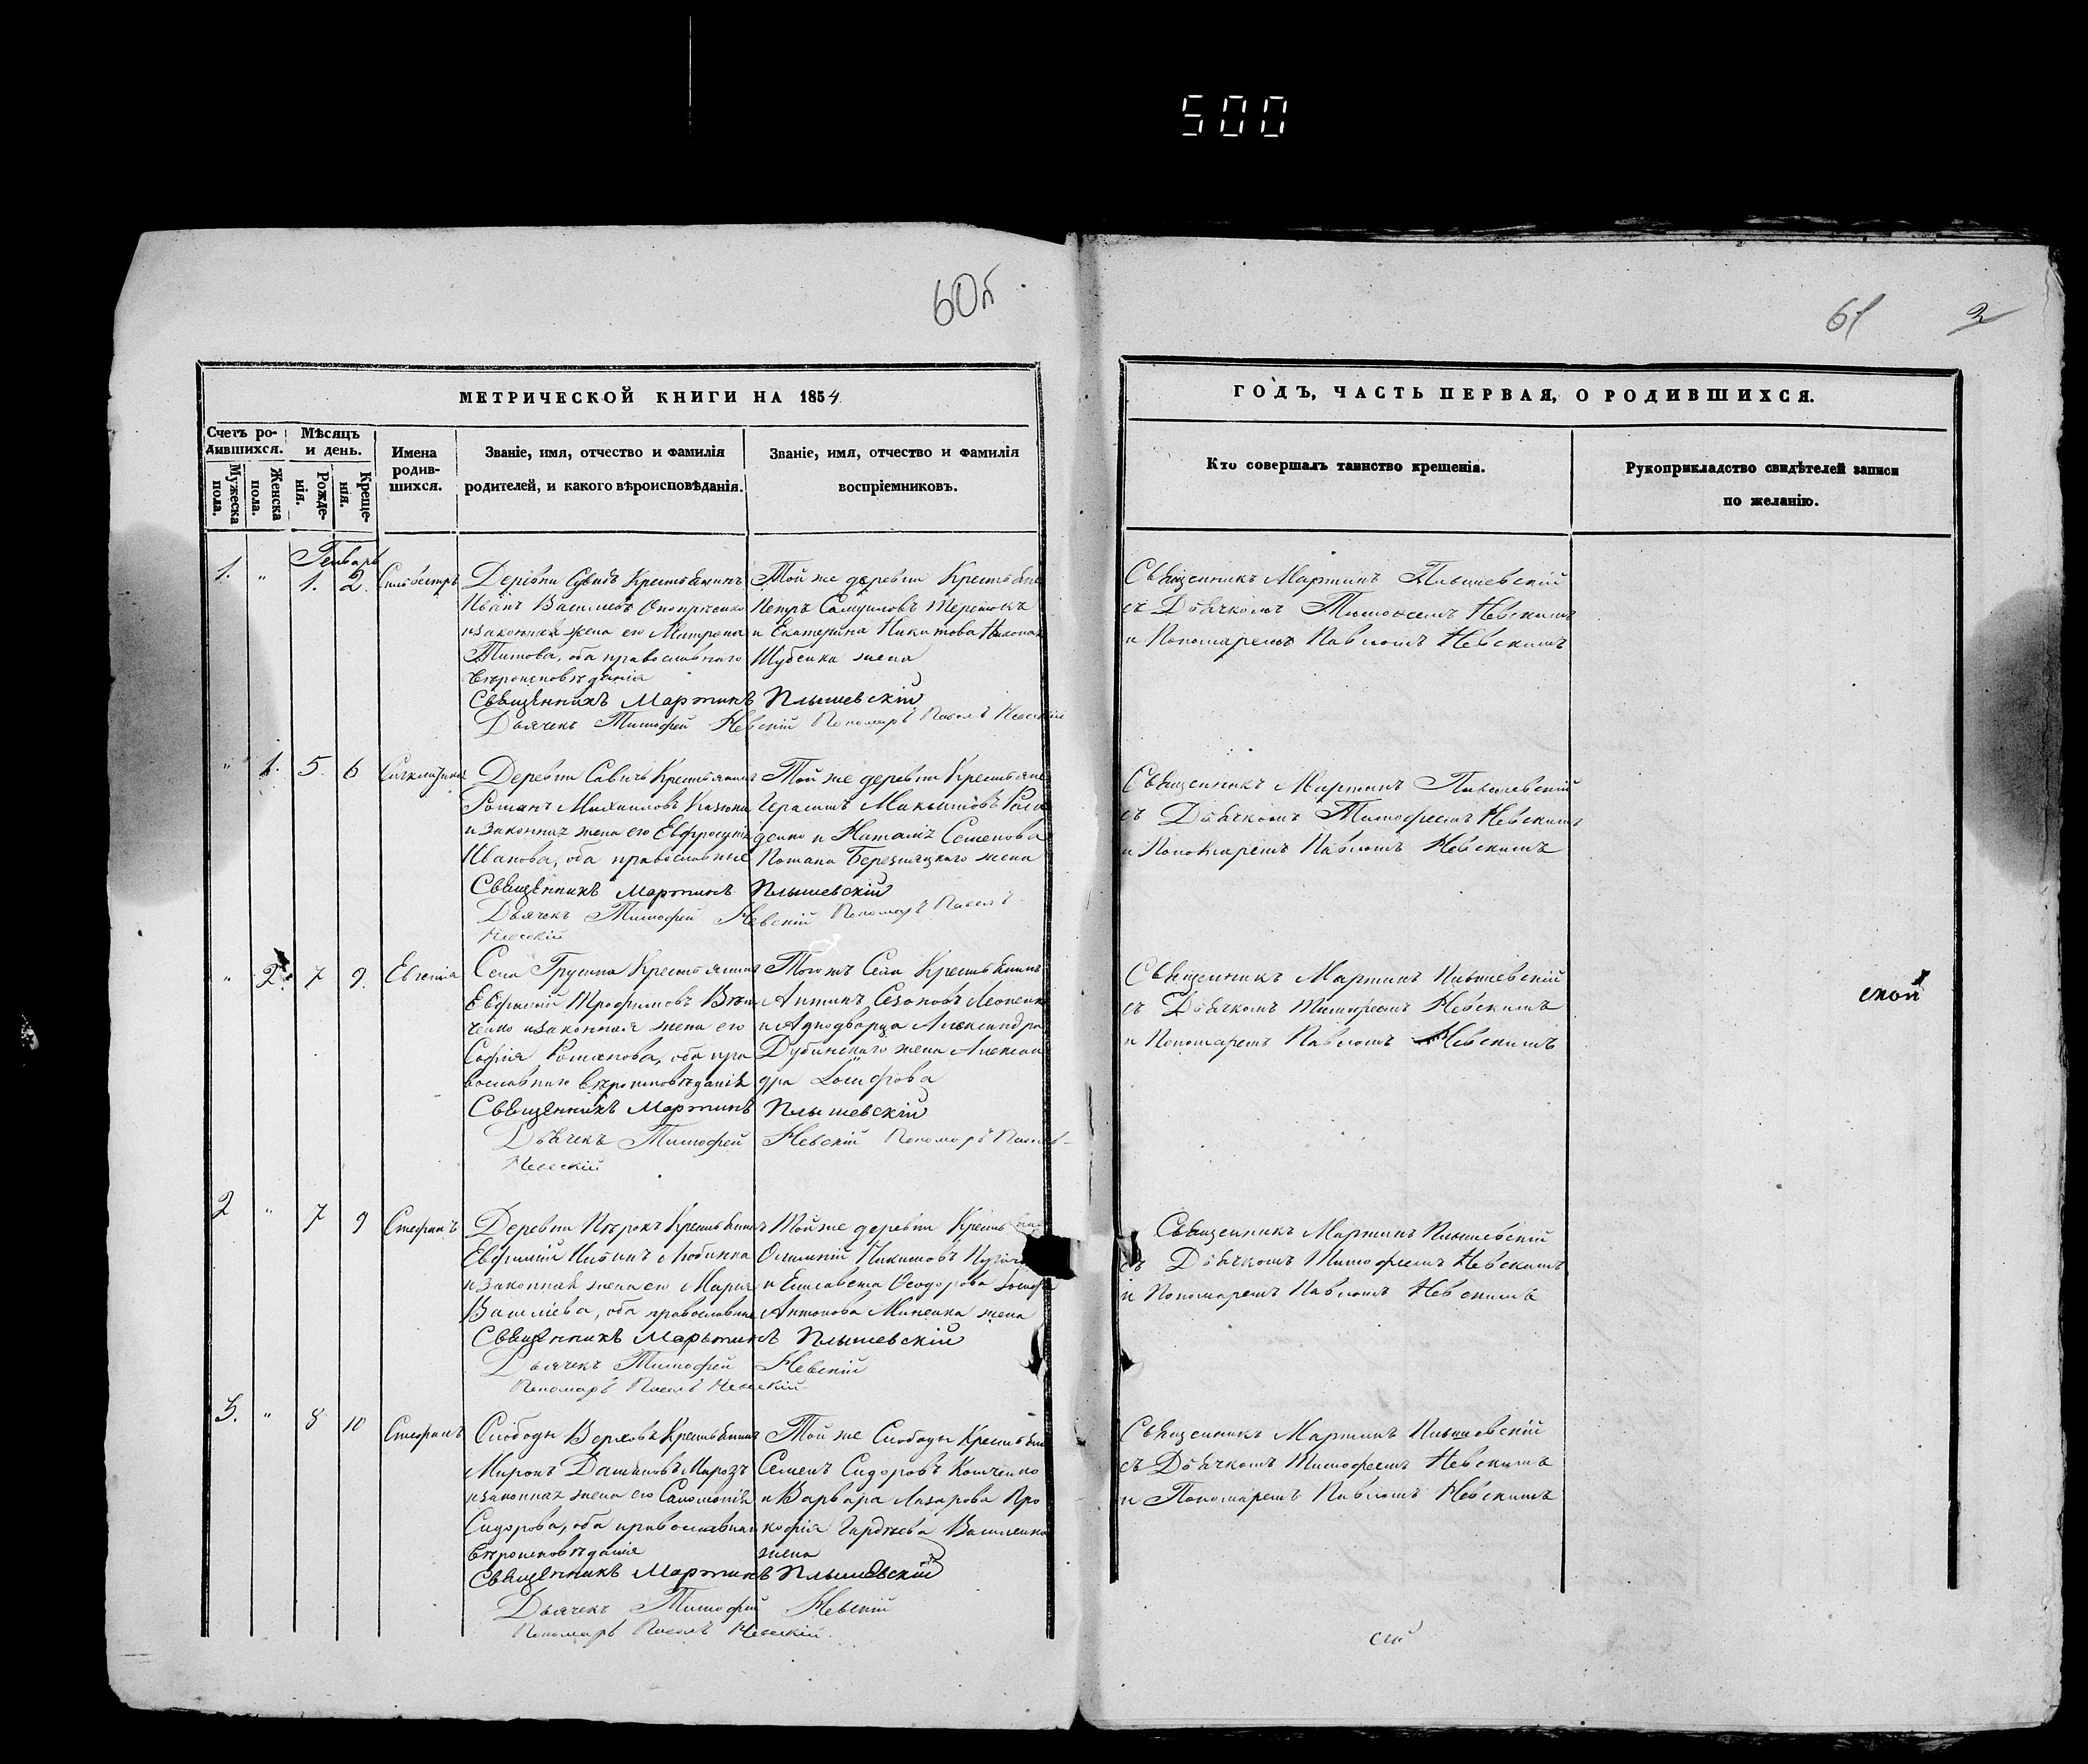 500
60б
61 2
МЕТРИЧЕСКОЙ КНИГИ НА 1854
Счетъ ро-
дившихся.
Мѣсяцъ
и день.
Мужеска
пола.
Женска
пола.
Рожде-
нія.
Креще-
нія.
Имена
родив-
шихся.
Званіе, имя, отчество и фамилія
родителей, и какого вѣроисповѣданія.
Званіе, имя, отчество и фамилія
воспріемниковъ.
Генварь
1. " 1. 2. Сильвестръ
Деревни Крестьянинъ
Иванъ Васильевъ
и законная жена его Матрона
Титова, оба православнаго
вѣроисповѣданія
Той же деревни Крестьяне
Петръ
и Екатерина Никитова
Шубенка жена
Священникъ Мартинъ Плышевскій
Дьячекъ Тимофей Невскій Пономарь Павелъ Невскій
" 1. 5. 6
Деревни Савичъ Крестьянинъ
Романъ Михаиловъ
и законная жена его Евфросинія
Иванова, оба православные
Той же деревни Крестьяне
Герасимъ
денко и Наталія Семенова
Потапа Березницкаго жена
Священникъ Мартинъ Плышевскій
Дьячекъ Тимофей Невскій Пономарь Павелъ
Невскій
" 2. 7 9. Евгенія
Села Крестьянинъ
Евфимій Трофимовъ
ченко и законная жена его
Софія Романова, оба пра
вославнаго вѣроисповѣданія
Того жъ Села Крестьянинъ
Антинъ
и Однодворца Александра
Дубинскаго жена Алексан
дра Іосифова
Священникъ Мартинъ Плышевскій
Дьячекъ Тимофей Невскій Пономарь Павелъ
Невскій
2 " 7 9 Стефанъ
Деревни Крестьянинъ
Евфимій
и законная жена его Марія
Василіева, оба православные
Той же деревни
Никитовъ
и Елисавета Ѳеодорова
Антонова Миненка жена
Священникъ Мартинъ Плышевскій
Дьячекъ Тимофей Невскій
Пономарь Павелъ Невскій
3. " 8 10 Стефанъ
Слободы Крестьянинъ
Миронъ
и законная жена его Саломонія
Сидорова, оба православнаго
вѣроисповѣданія
Той же Слободы
Семенъ Сидоровъ
и Варвара Лазарова Про
кофія Василенка
жена
Священникъ Мартинъ Плышевскій
Дьячекъ Тимофей Невскій
Пономарь Павелъ Невскій
ГОДЪ, ЧАСТЬ ПЕРВАЯ, О РОДИВШИХСЯ.
Кто совершалъ таинство крещенія.
Рукоприкладство свидѣтелей записи
по желанію.
Священникъ Мартинъ Плышевскій
съ Дьячкомъ Тимофеемъ Невскимъ
и Пономаремъ Павломъ Невскимъ
Священникъ Мартинъ Плышевскій
съ Дьячкомъ Тимофеемъ Невскимъ
и Пономаремъ Павломъ Невскимъ
Священникъ Мартинъ Плышевскій
съ Дьячкомъ Тимофеемъ Невскимъ
и Пономаремъ Павломъ Невскимъ
ской
Священникъ Мартинъ Плышевскій
съ Дьячкомъ Тимофеемъ Невскимъ
и Пономаремъ Павломъ Невскимъ
Священникъ Мартинъ Плышевскій
съ Дьячкомъ Тимофеемъ Невскимъ
и Пономаремъ Павломъ Невскимъ